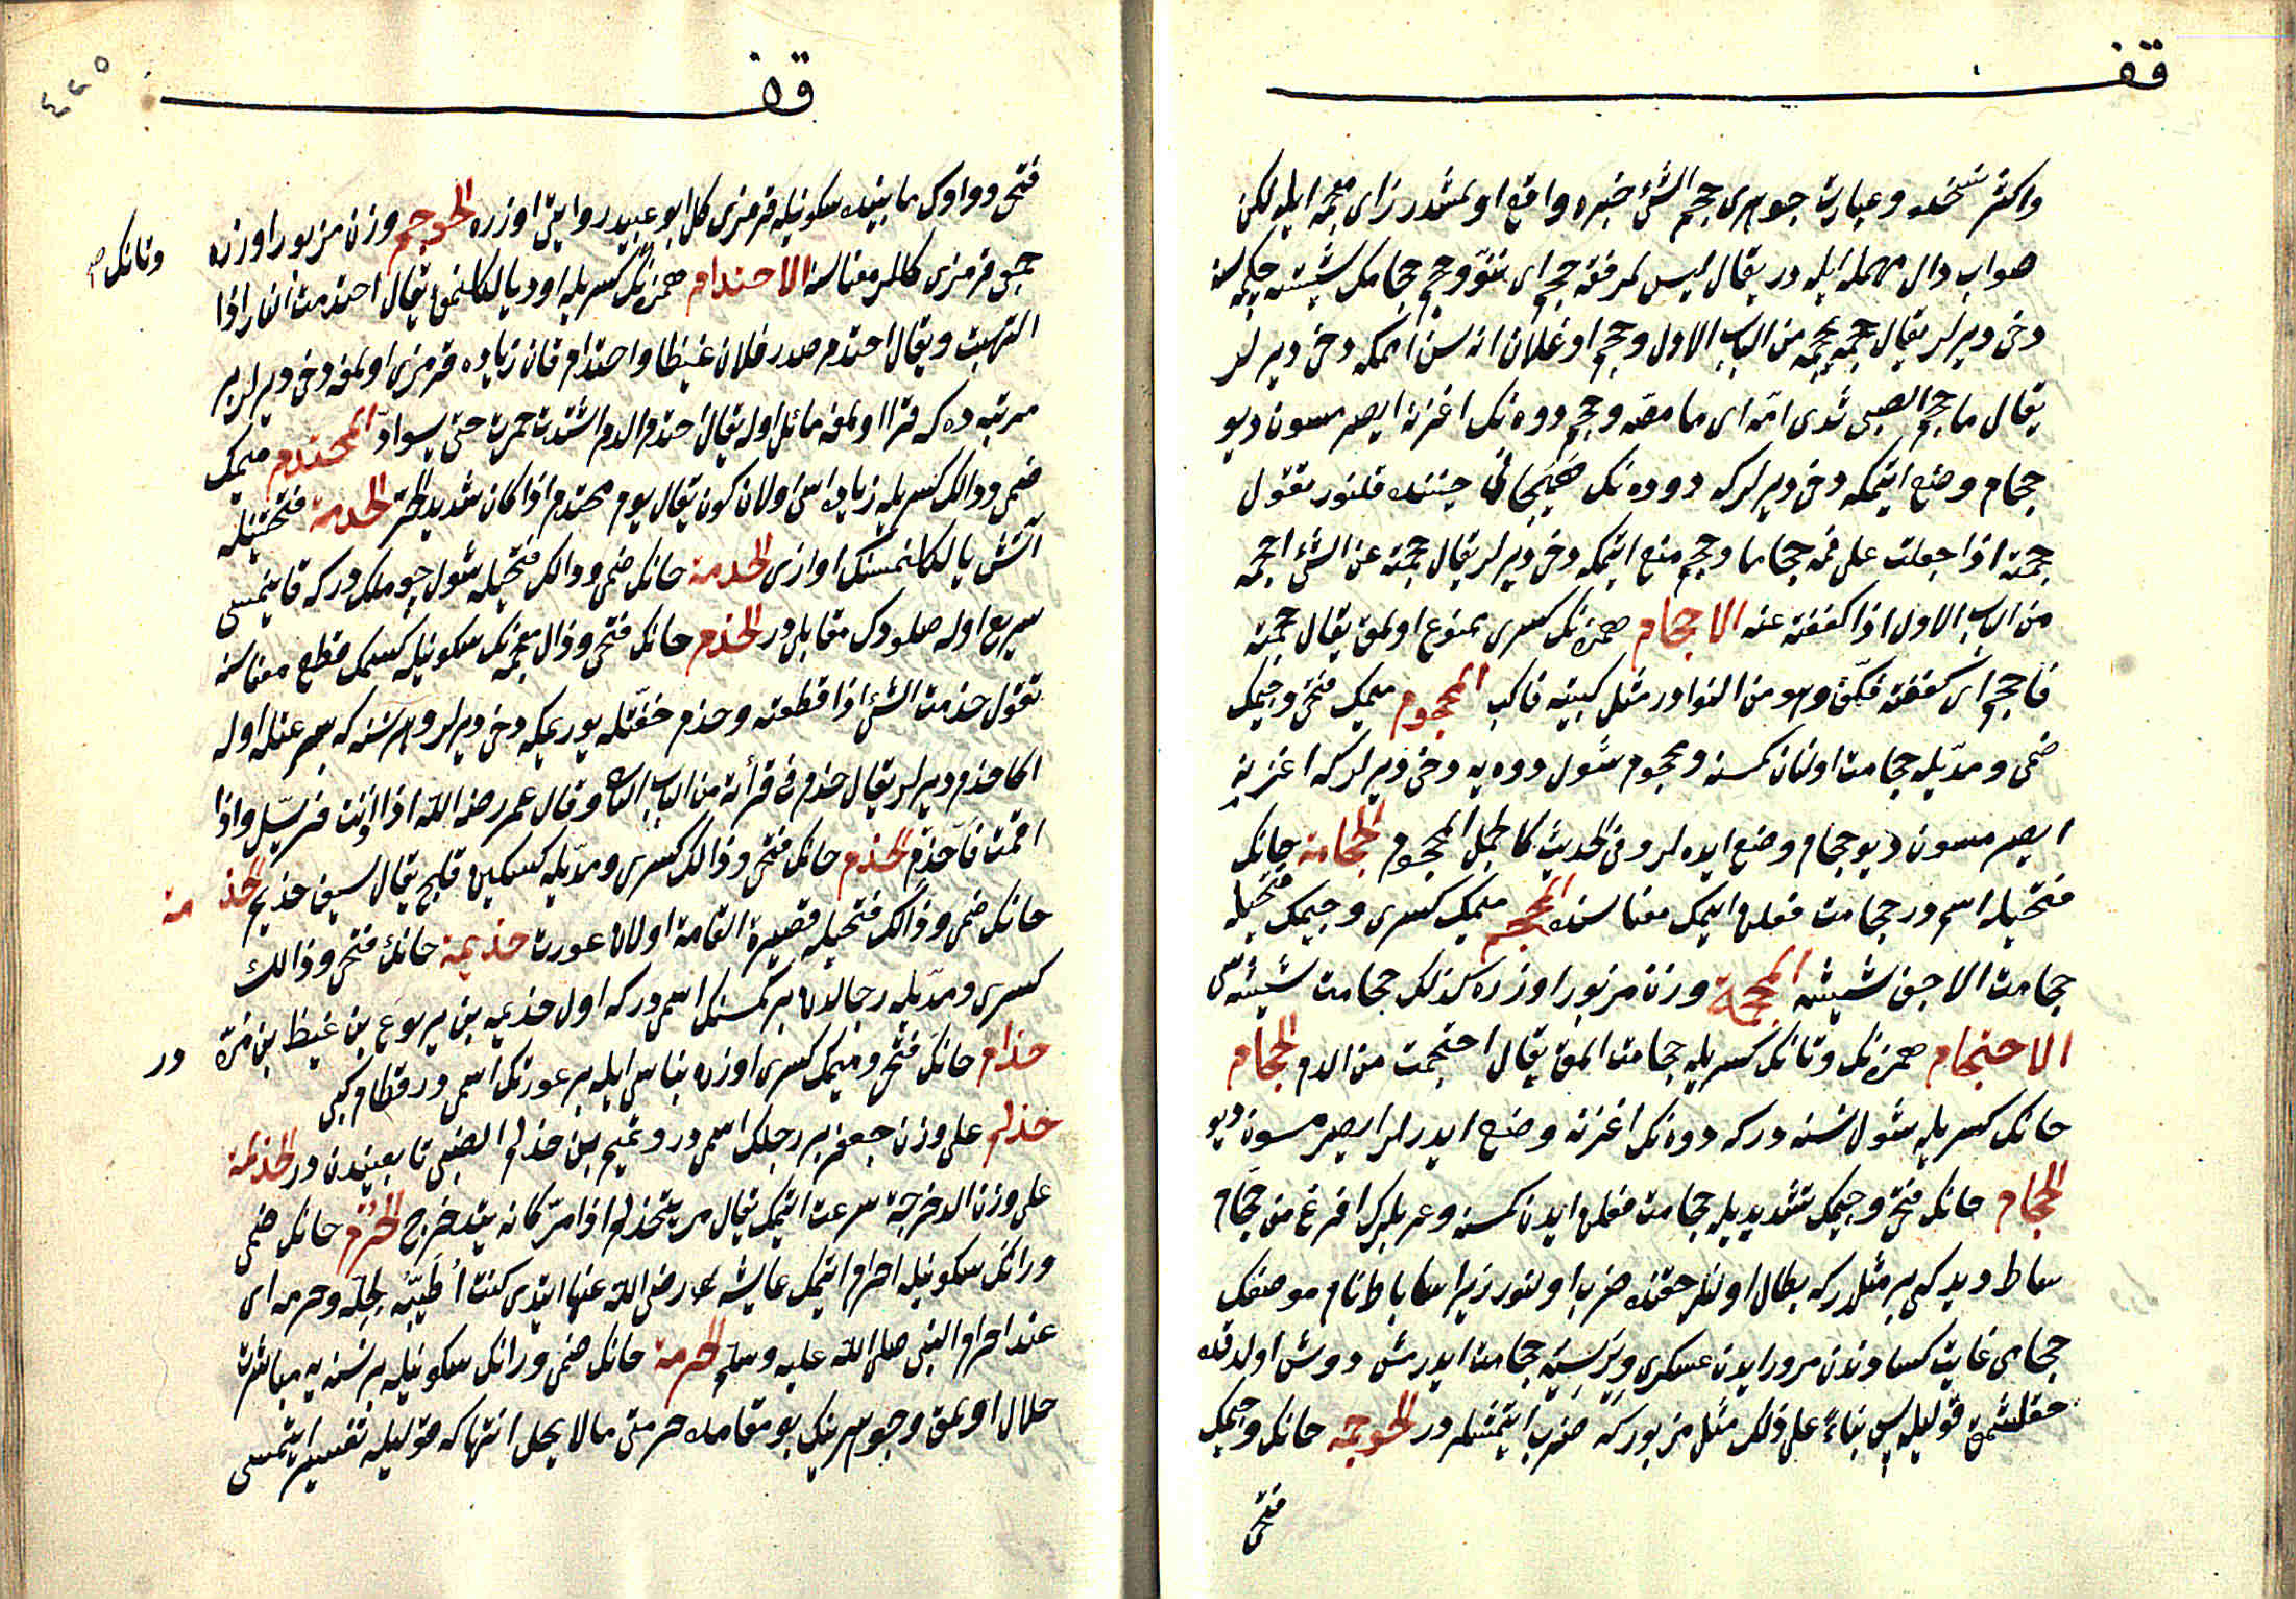 قف
واكثر نسخده وعبارت جوهرى حجم الشئ خبره واقع اولمشدر زاى معجمه ايله لكن
صواب دال مهمله ايله در يقال ليس لمرفقه حجم اى نتوّ وحجم حجامك شيشه چكمه‌سنه
دخى ديرلر يقال حجمه يحجمه من الباب الاول وحجم اوغلان اناسن اممكه دخى ديرلر
يقال ما حجم الصبى ثدى امّه اى ما مصّه وحجم دوه‌نك اغزنه ايصرمسون ديو
حجام وضع ايتمكه دخى ديرلركه دوه‌نك هيجانى حيننده قلنور تقول
حجمته اذا جعلت على فمه حجاما وحجم منع ايتمكه دخى ديرلر يقال حجمته عن الشئ احجمه
من الباب الاول اذا كففته عنه الاحجام همزه‌نك كسرى ممنوع اولمق يقال حجمته
فاحجم اى كففته فكفّ وهو من النوادر مثل كببته فاكب المحجوم ميمك فتحى وجيمك
ضمى ومدّيله حجامت اولنان كمسنه ومحجوم شول دوه‌يه دخى ديرلركه اغزينه
ايصرمسون ديو حجام وضع ايده‌لر وفى الحديث كالجمل المحجوم الحجامة حانك
فتحيله اسمدر حجامت فعلنى ايتمك معناسنه المحجم ميمك كسرى وجيمك فتحيله
حجامت الاجق شيشه المحجمة وزن مزبور اوزره كذلك حجامت شيشه‌سى
الاحتجام همزه‌نك وتانك كسريله حجامت المق يقال احتجمت من الدم الحجام
حانك كسريله شول نسنه دركه دوه‌نك اغزنه وضع ايدرلر ايصرمسون ديو
الحجام حانك فتحى وجيمك تشديديله حجامت فعلنى ايدن كمسنه وعربلرك افرغ من حجام
ساباط ديدكى بر مثلدركه بطال اولنلر حقنده ضرب اولنور زيرا ساباط نام موضعك
حجامى غايت كساددن مرور ايدن عسكرى ويره‌سيه حجامت ايدرمش دوش اولدقده
حقلشمق قوليله پس بناءً على ذلك مثل مزبوركه ضرب ايتمشلردر الحوجمة حانك وجيمك
فتحى
قف
٤٢٥
فتحى وواوك مابينده سكونيله قرمزى كل ابو عبيد روايتى اوزره الحوجم وزن مزبور اوزره
جمعى قرمزى كللر معناسنه الاحتدام همزه‌نك كسريله اود يالكلنمق يقال احتدمت النار اذا
وتانك صح
التهبت ويقال احتدم صدر فلان غيظا واحتدام قان زياده قرمزى اولمغه دخى ديرلر بر
مرتبه ده كه قرا اولمغه مائل اوله يقال احتدم الدم اشتدت حمرته حتى يسوادّ المحتدم ميمك
ضمى ودالك كسريله زياده اسّى اولان كون يقال يوم محتدم اذا كان شديد الحرّ الحدمة فتحتينله
آتش يالكلنمسنك اوازى الحدمة حانك ضمى ودالك فتحيله شول چوملك دركه قاينمسى
سريع اوله صلودك مقابلى در الحذم حانك فتحى وذال معجمه‌نك سكونيله كسمك قطع معناسنه
تقول حذمت الشئ اذا قطعته وحذم خفّتله يوريمكه دخى ديرلر وهر نسنه كه سرعتله اوله
اكا حذم ديرلر يقال حذم فى قرأته من الباب الثانى وقال عمر رضى الله اذا اذّنت فترسّل واذا
اقمت فاحذم الحذم حانك فتحى وذالك كسرى ومدّيله كسكين قلج يقال سيف حذيم الحذمة
حانك ضمى وذالك فتحيله قصيرة القامة اولان عورت حذيمة حانك فتحى وذالك
كسرى ومدّيله رجالدن بر كمسنك اسميدركه اول حذيمه بن يربوع بن غيظ بن مرّة در
حذام حانك فتحى وميمك كسرى اوزره بناسى ايله بر عورتك اسمى در قطام كبى
حذلم على وزن جعفر بر رجلك اسمى در وتميم بن حذلم الضبى تابعيندن در الحذلمة
على وزن الدحرجة سرعت ايتمك يقال مرّ يتحذلم اذا مرّ كانه يتدحرج الحرم حانك ضمى
ورانك سكونيله احرام ايتمك عايشه رضى الله عنها ايتدى كنت اُطيّبه لحلّه وحرمه اى
عند احرام النبى صلى الله عليه وسلم الحرمة حانك ضمى ورانك سكونيله بر نسنه‌يه مباشرت
حلال اولمق وجوهرينك بو مقامده حرمتى مالا يحل انتهاكه قوليله تفسير ايتمسى